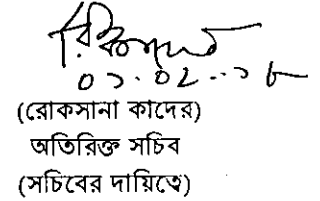 ০১.০২.১৮
(রোকসানা কাদের)
অতিরিক্ত সচিব
(সচিবের দায়িত্বে)